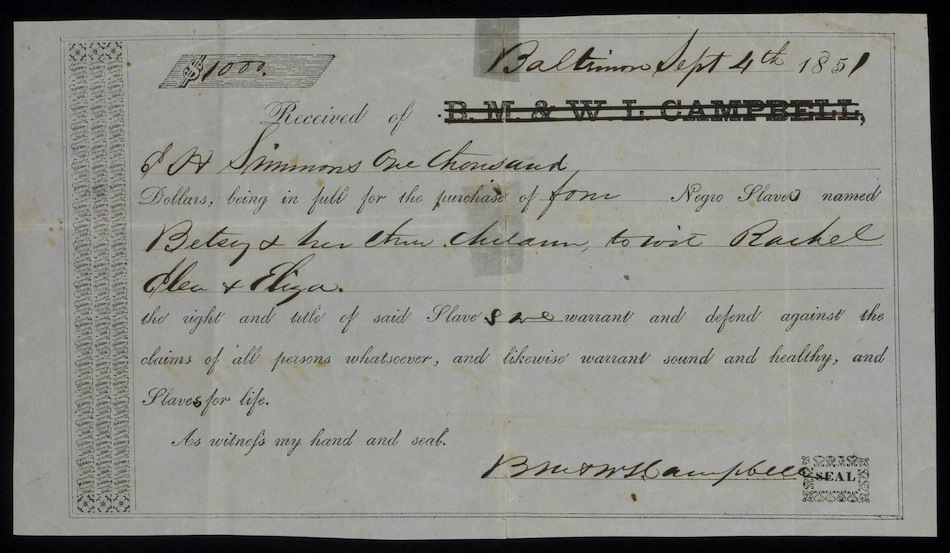 $1000. Baltimore Sept 4th 1851
Received of B. M. & W. L. CAMPBELL,
J H Simmons One thousand
Dollars, being in full for the purchase of four Negro Slaves named
Betsey & her three children, to wit Rachel
& Eliza.
the right and title of said Slaves we warrant and defend against the
claims of all persons whatsoever, and likewise warrant sound and healthy, and
Slaves for life.
As witness my hand and seal.
B M & W L Campbell SEAL